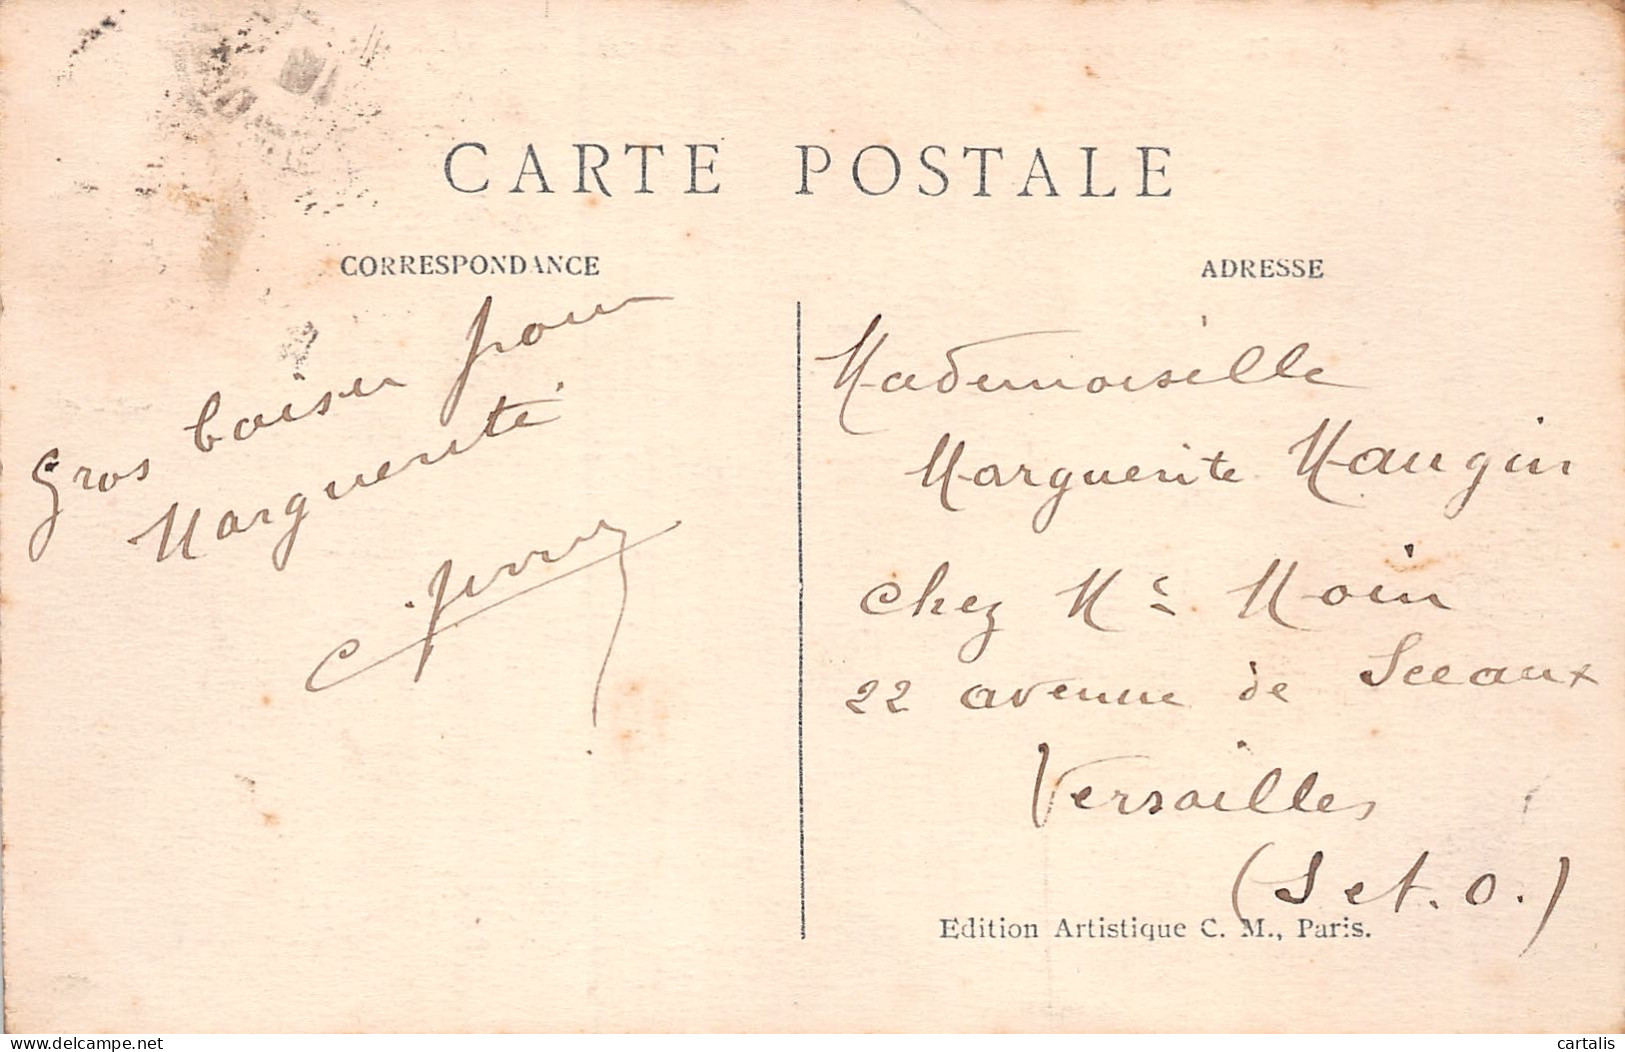 CARTE POSTALE
CORRESPONDANCE
Gros baiser pour
Marguerite
ADRESSE
Mademoiselle
Marguerite Maugin
chez Mr Moin
22 avenue de Sceaux
Versailles
(S et. O.)
Edition Artistique C. M., Paris.
delcampe.net
cartalis